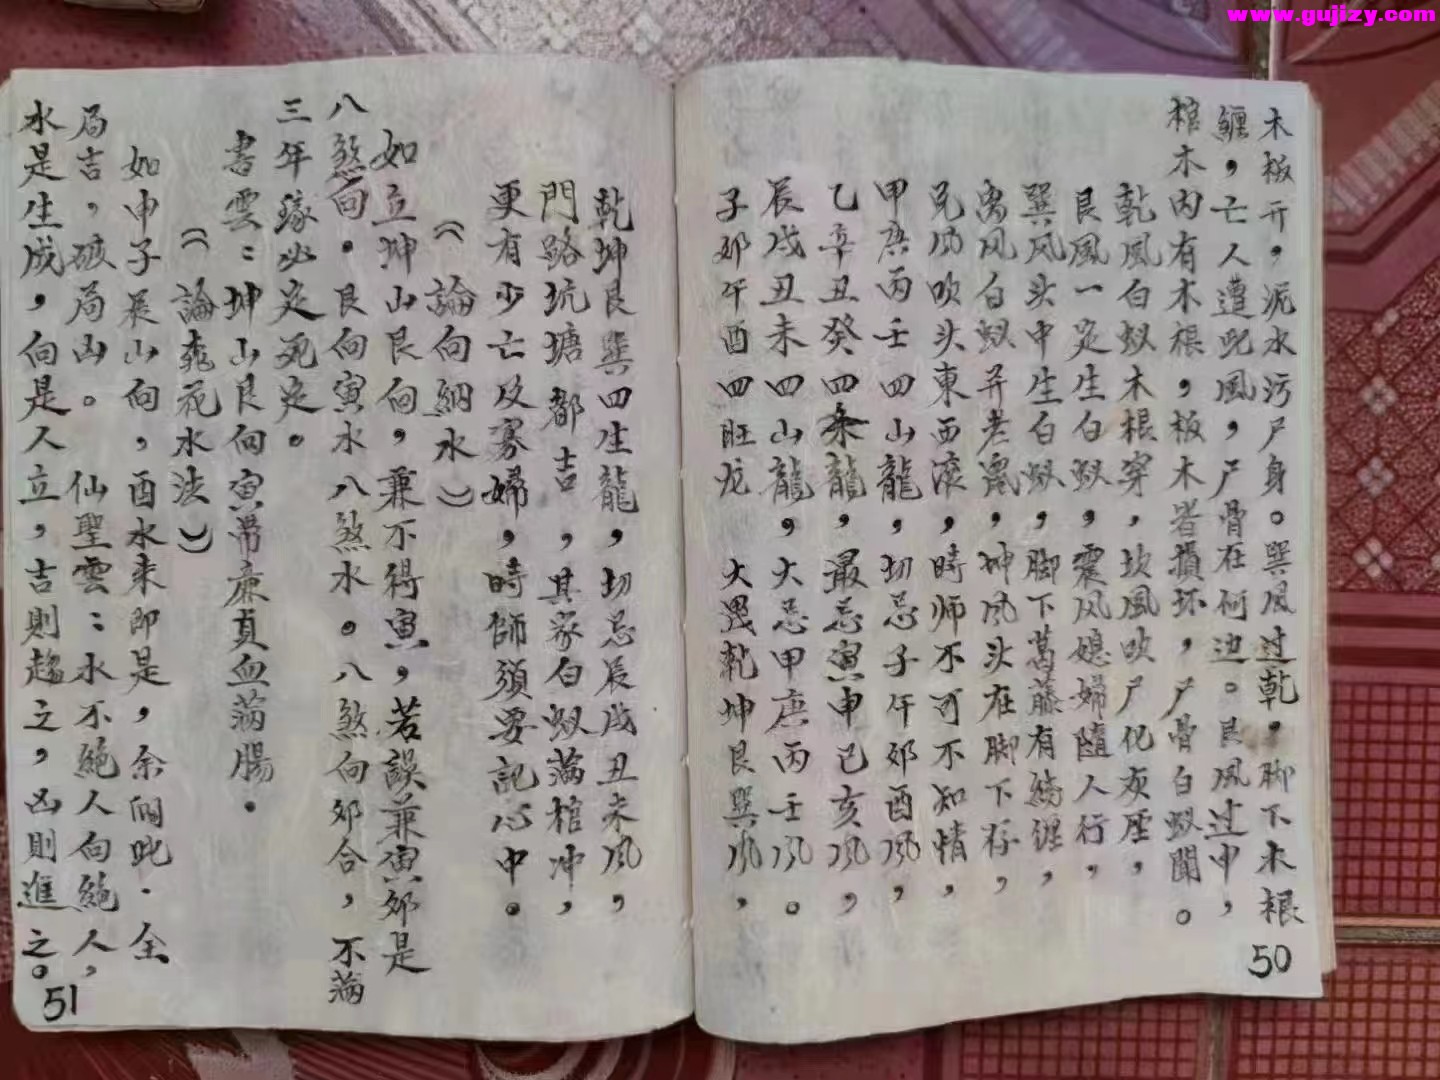 www.gujizy.com
木板开，泥水污尸身。巽风过乾，脚下木根
缠，亡人遭此風，尸骨在何边。艮风过中，
棺木内有木根，板木岩損坏，尸骨白蚁闹。
乾風白蚁木根穿，坎風吹尸化灰塵，
艮風一定生白蚁，震风媳婦隨人行，
巽风头中生白蚁，脚下葛藤有綉缠，
离风白蚁并老鼠，坤风头在脚下存，
兑风吹头東西滚，時师不可不知情，
甲庚丙壬四山龍，切忌子午卯酉风，
乙辛丑癸四条龍，最忌寅申已亥风，
辰戌丑未四山龍，大忌甲庚丙壬风。
子卯午酉四旺龙 大畏乾坤艮巽风，
50
乾坤艮巽四生龍，切忌辰戌丑未风，
門路坑塘都吉，其家白蚁滿棺冲，
更有少亡及寡婦，時師須要記心中。
（論向納水）
如立坤山艮向，兼不得寅，若誤兼寅卯是
八煞向。艮向寅水八煞水。八煞向卯合，不滿
三年缘必定死定。
書雲：坤山艮向寅帶廉貞血滿腸。
（論桃花水法）
如申子辰山向，酉水来即是，余倣此．全
局吉，破局凶。 仙聖雲：水不絕人向絕人，
水是生成，向是人立，吉則趨之，凶則進之。
51